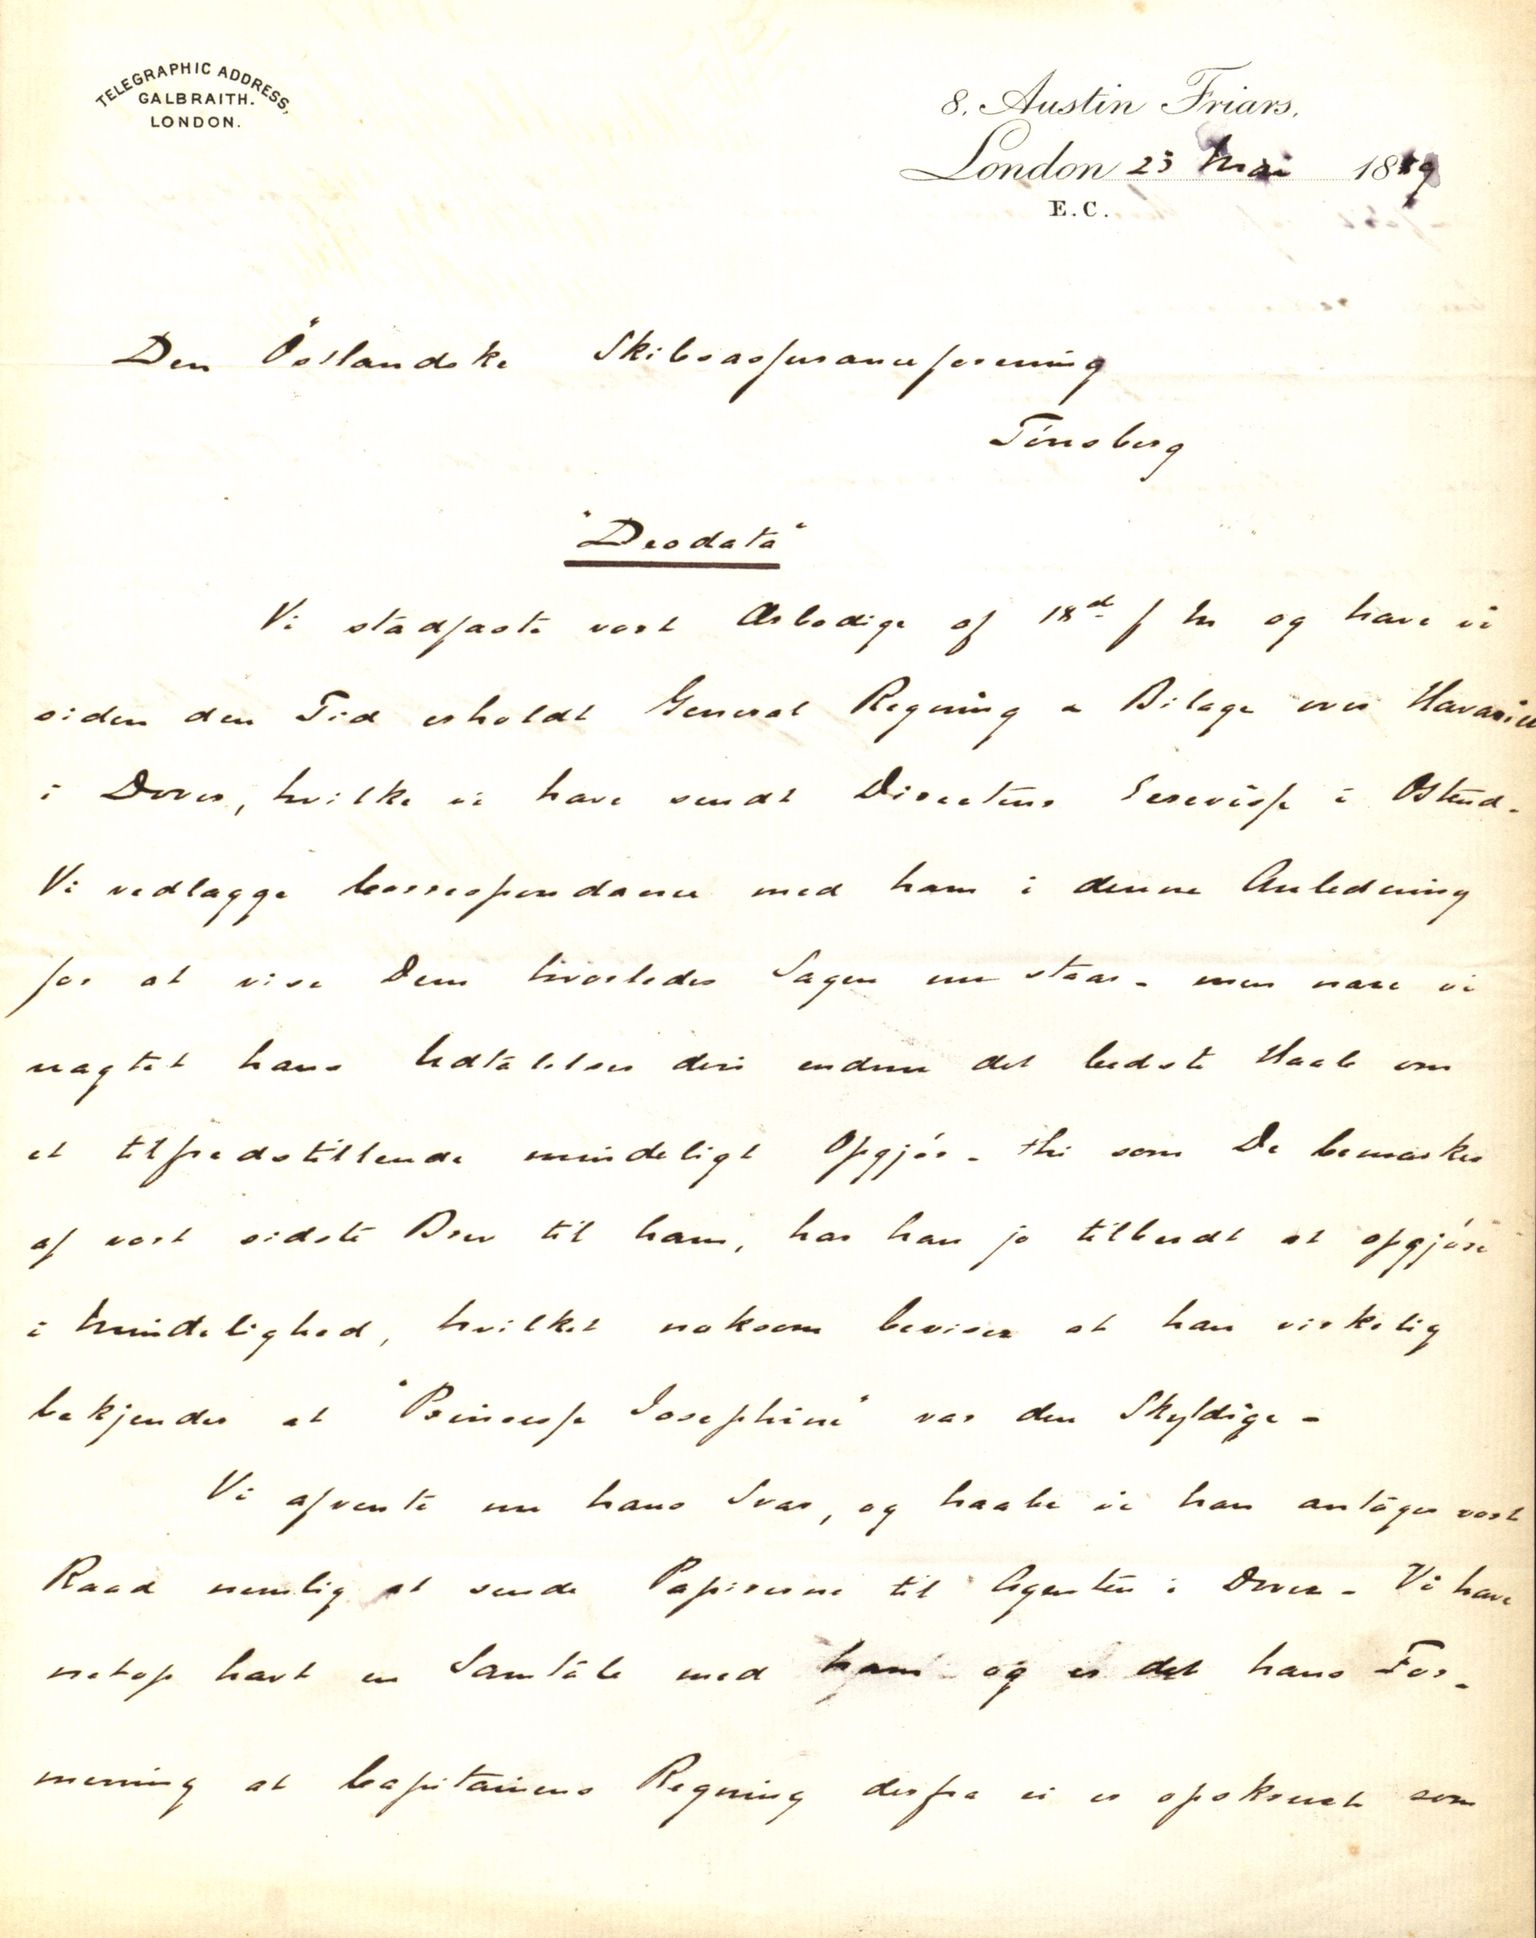 TELEGRAPHIC ADDRESS,
GALBRAITH.
LONDON.
8, Austin Friars,
London 23 Mai 1889
E.C.
Den Östlandske Skibsassuranceforening
Tönsberg
"Deodata"
Vi stadfæste vort Ærbødige af 18de f M og have vi
siden den Tid erholdt General Regning & Bilage over Havariet
i Dover, hvilke vi have sendt Directeur i Ostend.
Vi vedlægge Correspondance med ham i denne Anledning
for at vise Dem hvorledes Sagen nu staar - men nære vi
uagtet hans Udtalelser deri endnu det bedste Haab om
et tilfredstillende mindeligt Opgjör - thi som De bemærker
af vort sidste Brev til ham, har han jo tilbudt at opgjöre
i Mindelighed, hvilket noksom beviser at han virkelig
bekjender at "Princesse Josephine" var den Skyldige -
Vi afvente nu hans Svar, og haabe vi han antager vort
Raad nemlig at sende Papirerne til Agenten i Dover - Vi have
netop havt en Samtale med ham og er det hans For-
mening at Capitainens Regning derfra ei er opskruet som